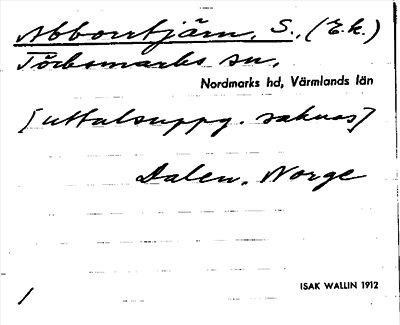 Abborrtjärn, S., (Ek.)
Töcksmarks sn.
Nordmarks hd, Värmlands län
[uttalsuppg. saknas]
Dalen. Norge
ISAK WALLIN 1912
/